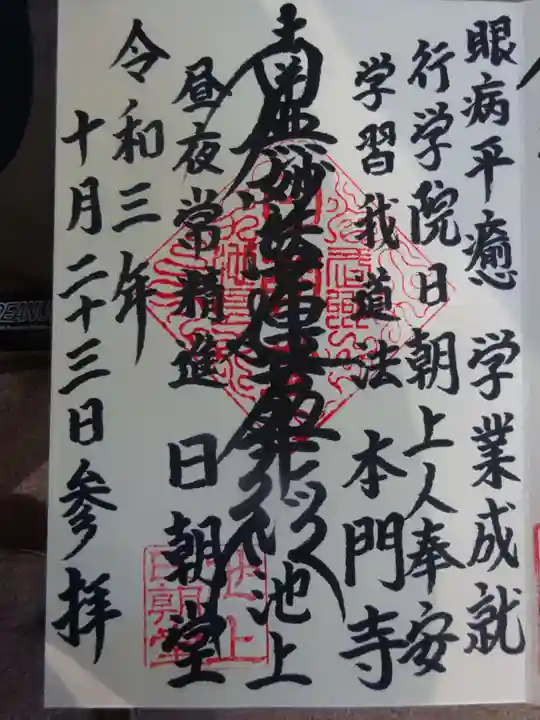 眼病平癒 学業成就
行学院日朝上人奉安
学習我道法 本門寺
南無妙法蓮華経 池上
昼夜常精進 日朝堂
令和三年
十月二十三日参拝
池上
日朝堂
PEANU